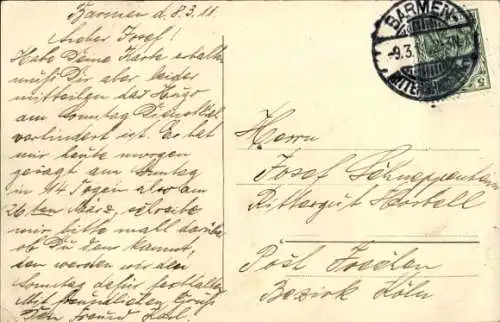 Barmen d. 8.3.11.
Lieber Josef!
Habe Deine Karte erhalten
muß Dir aber leider
mitteilen das Hugo
am Sonntag dienstlich
verhindert ist. Er hat
mir heute morgen
gesagt am Sonntag
in 14 Tagen also am
26ten März, schreibe
mir bitte mall darüber
ob Du dann kannst,
den werden wir den
Sonntag dafür festhalten
Mit freundlichen Gruß
Dein Freund Karl.
BARMEN-
-9.3.
Herrn
Josef Schneppenheim
Rittergut Horbell
Post Frechen
Bezirk Köln